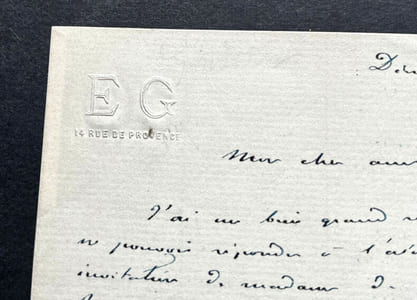 EG
14 RUE DE PROVENCE
Mon cher ami
J'ai un bien grand
pouvoir répondre à
invitation de madame de